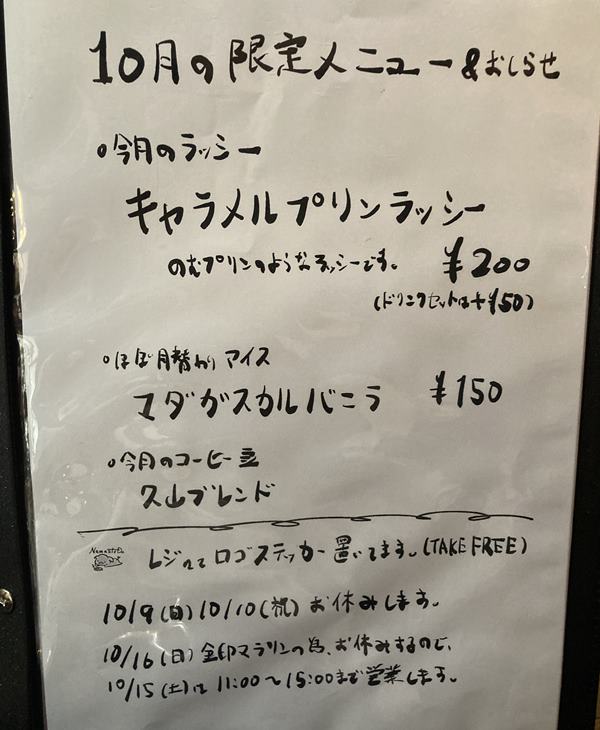 10月の限定メニュー&おしらせ
○今月のラッシー
キャラメルプリンラッシー
のむプリンのようなラッシーです。 ¥200
(ドリンクセットは+¥50)
○ほぼ月替わりアイス
マダガスカルバニラ ¥150
○今月のコーヒー豆
久山ブレンド
レジにて ロゴステッカー置いてます。(TAKE FREE)
10/9(日)10/10(祝) お休みします。
10/16(日) 金印マラソンの為、お休みするので、
10/15(土)は 11:00〜15:00まで営業します。